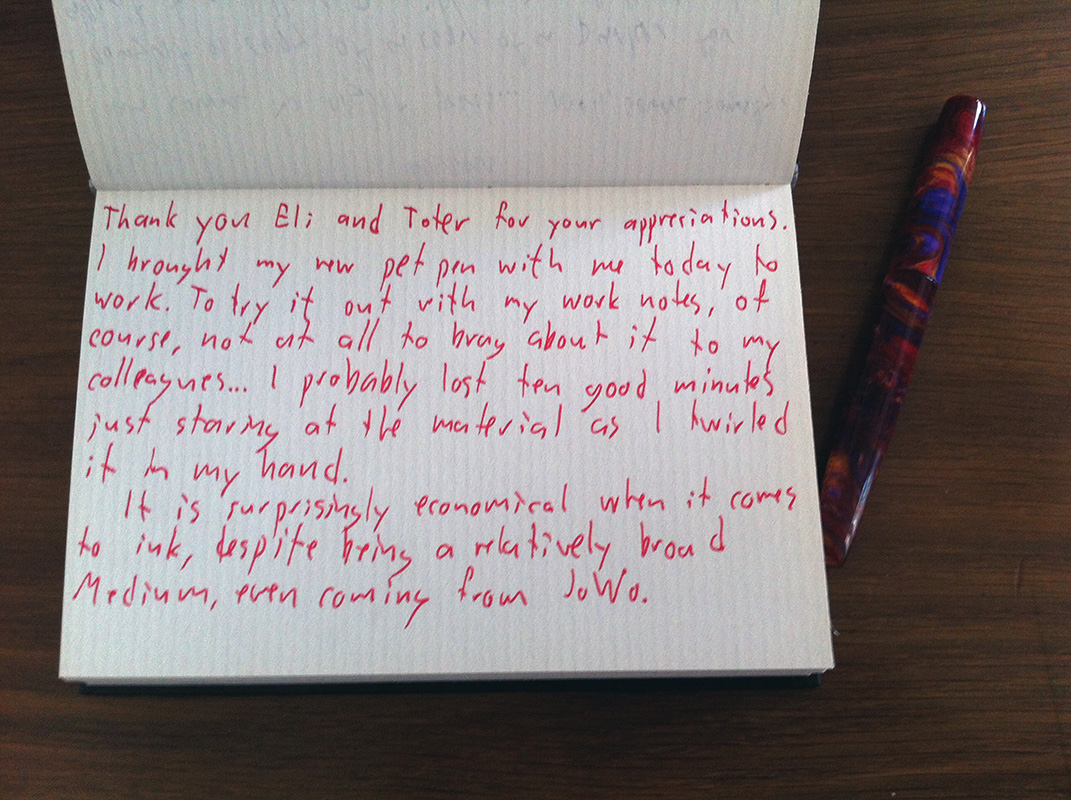 Thank you Eli and Toter for your appreciations.
I brought my new pet pen with me today to
work. To try it out with my work notes, of
course, not at all to brag about it to my
colleagues... I probably lost ten good minutes
just staring at the material as I twirled
it in my hand.
It is surprisingly economical when it comes
to ink, despite being a relatively broad
Medium, even coming from JoWo.